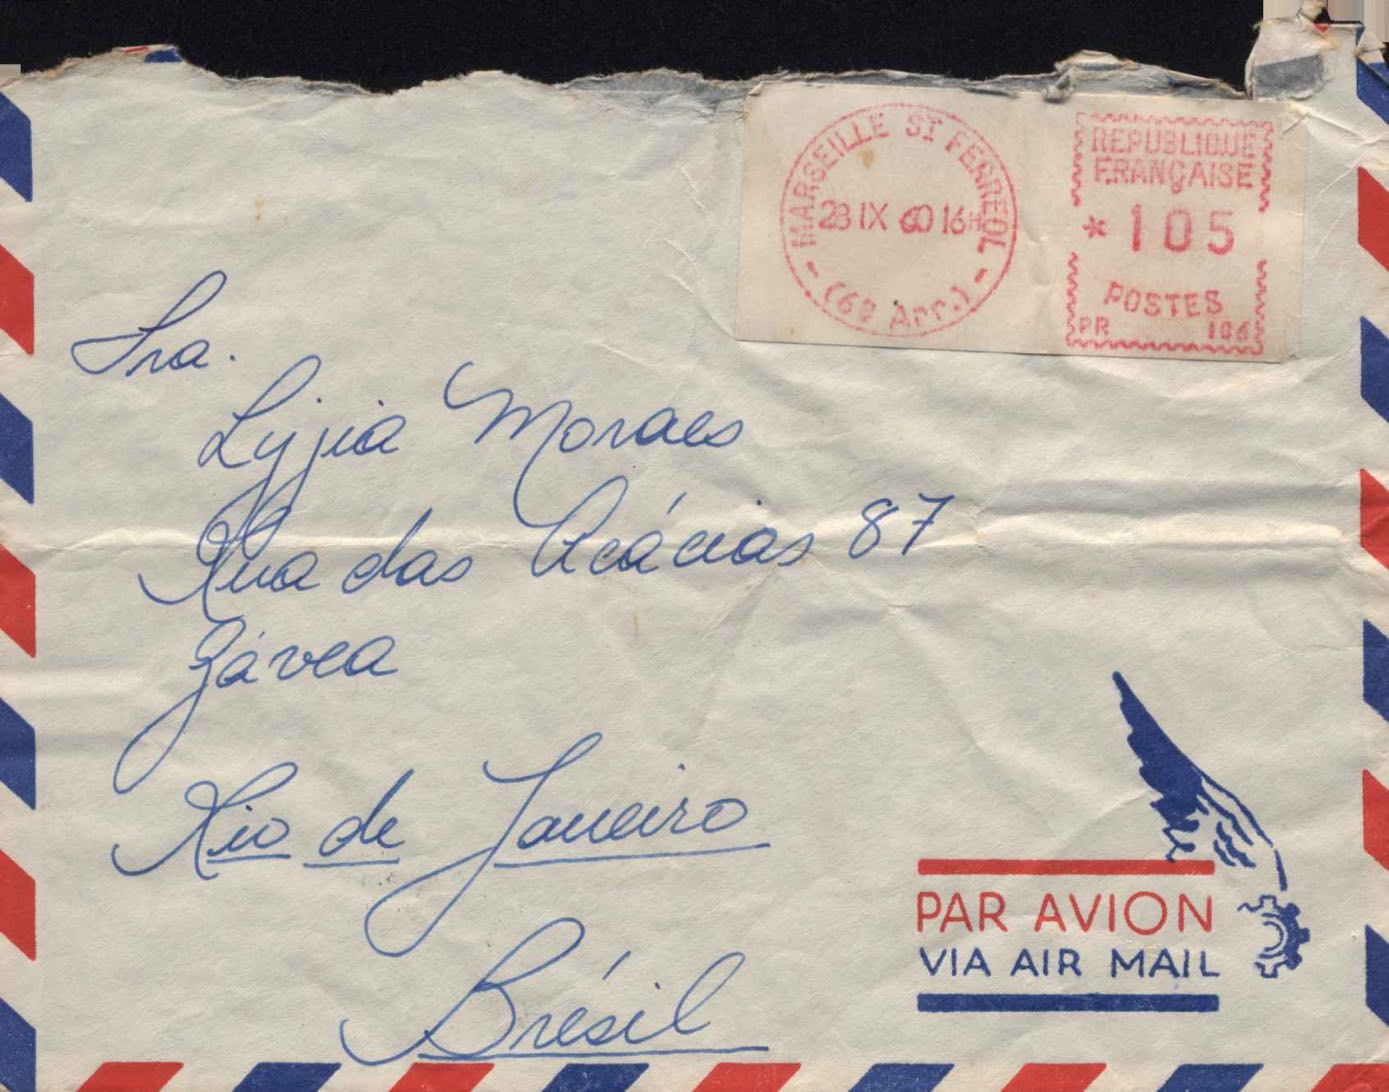 MARSEILLE ST FERREOL
28 IX 60 16H
(6e Arr.)
REPUBLIQUE
FRANÇAISE
* 105
POSTES
PR 106
Sra.
Lygia Moraes
Rua das Acácias 87
Gávea
Rio de Janeiro
Brésil
PAR AVION
VIA AIR MAIL